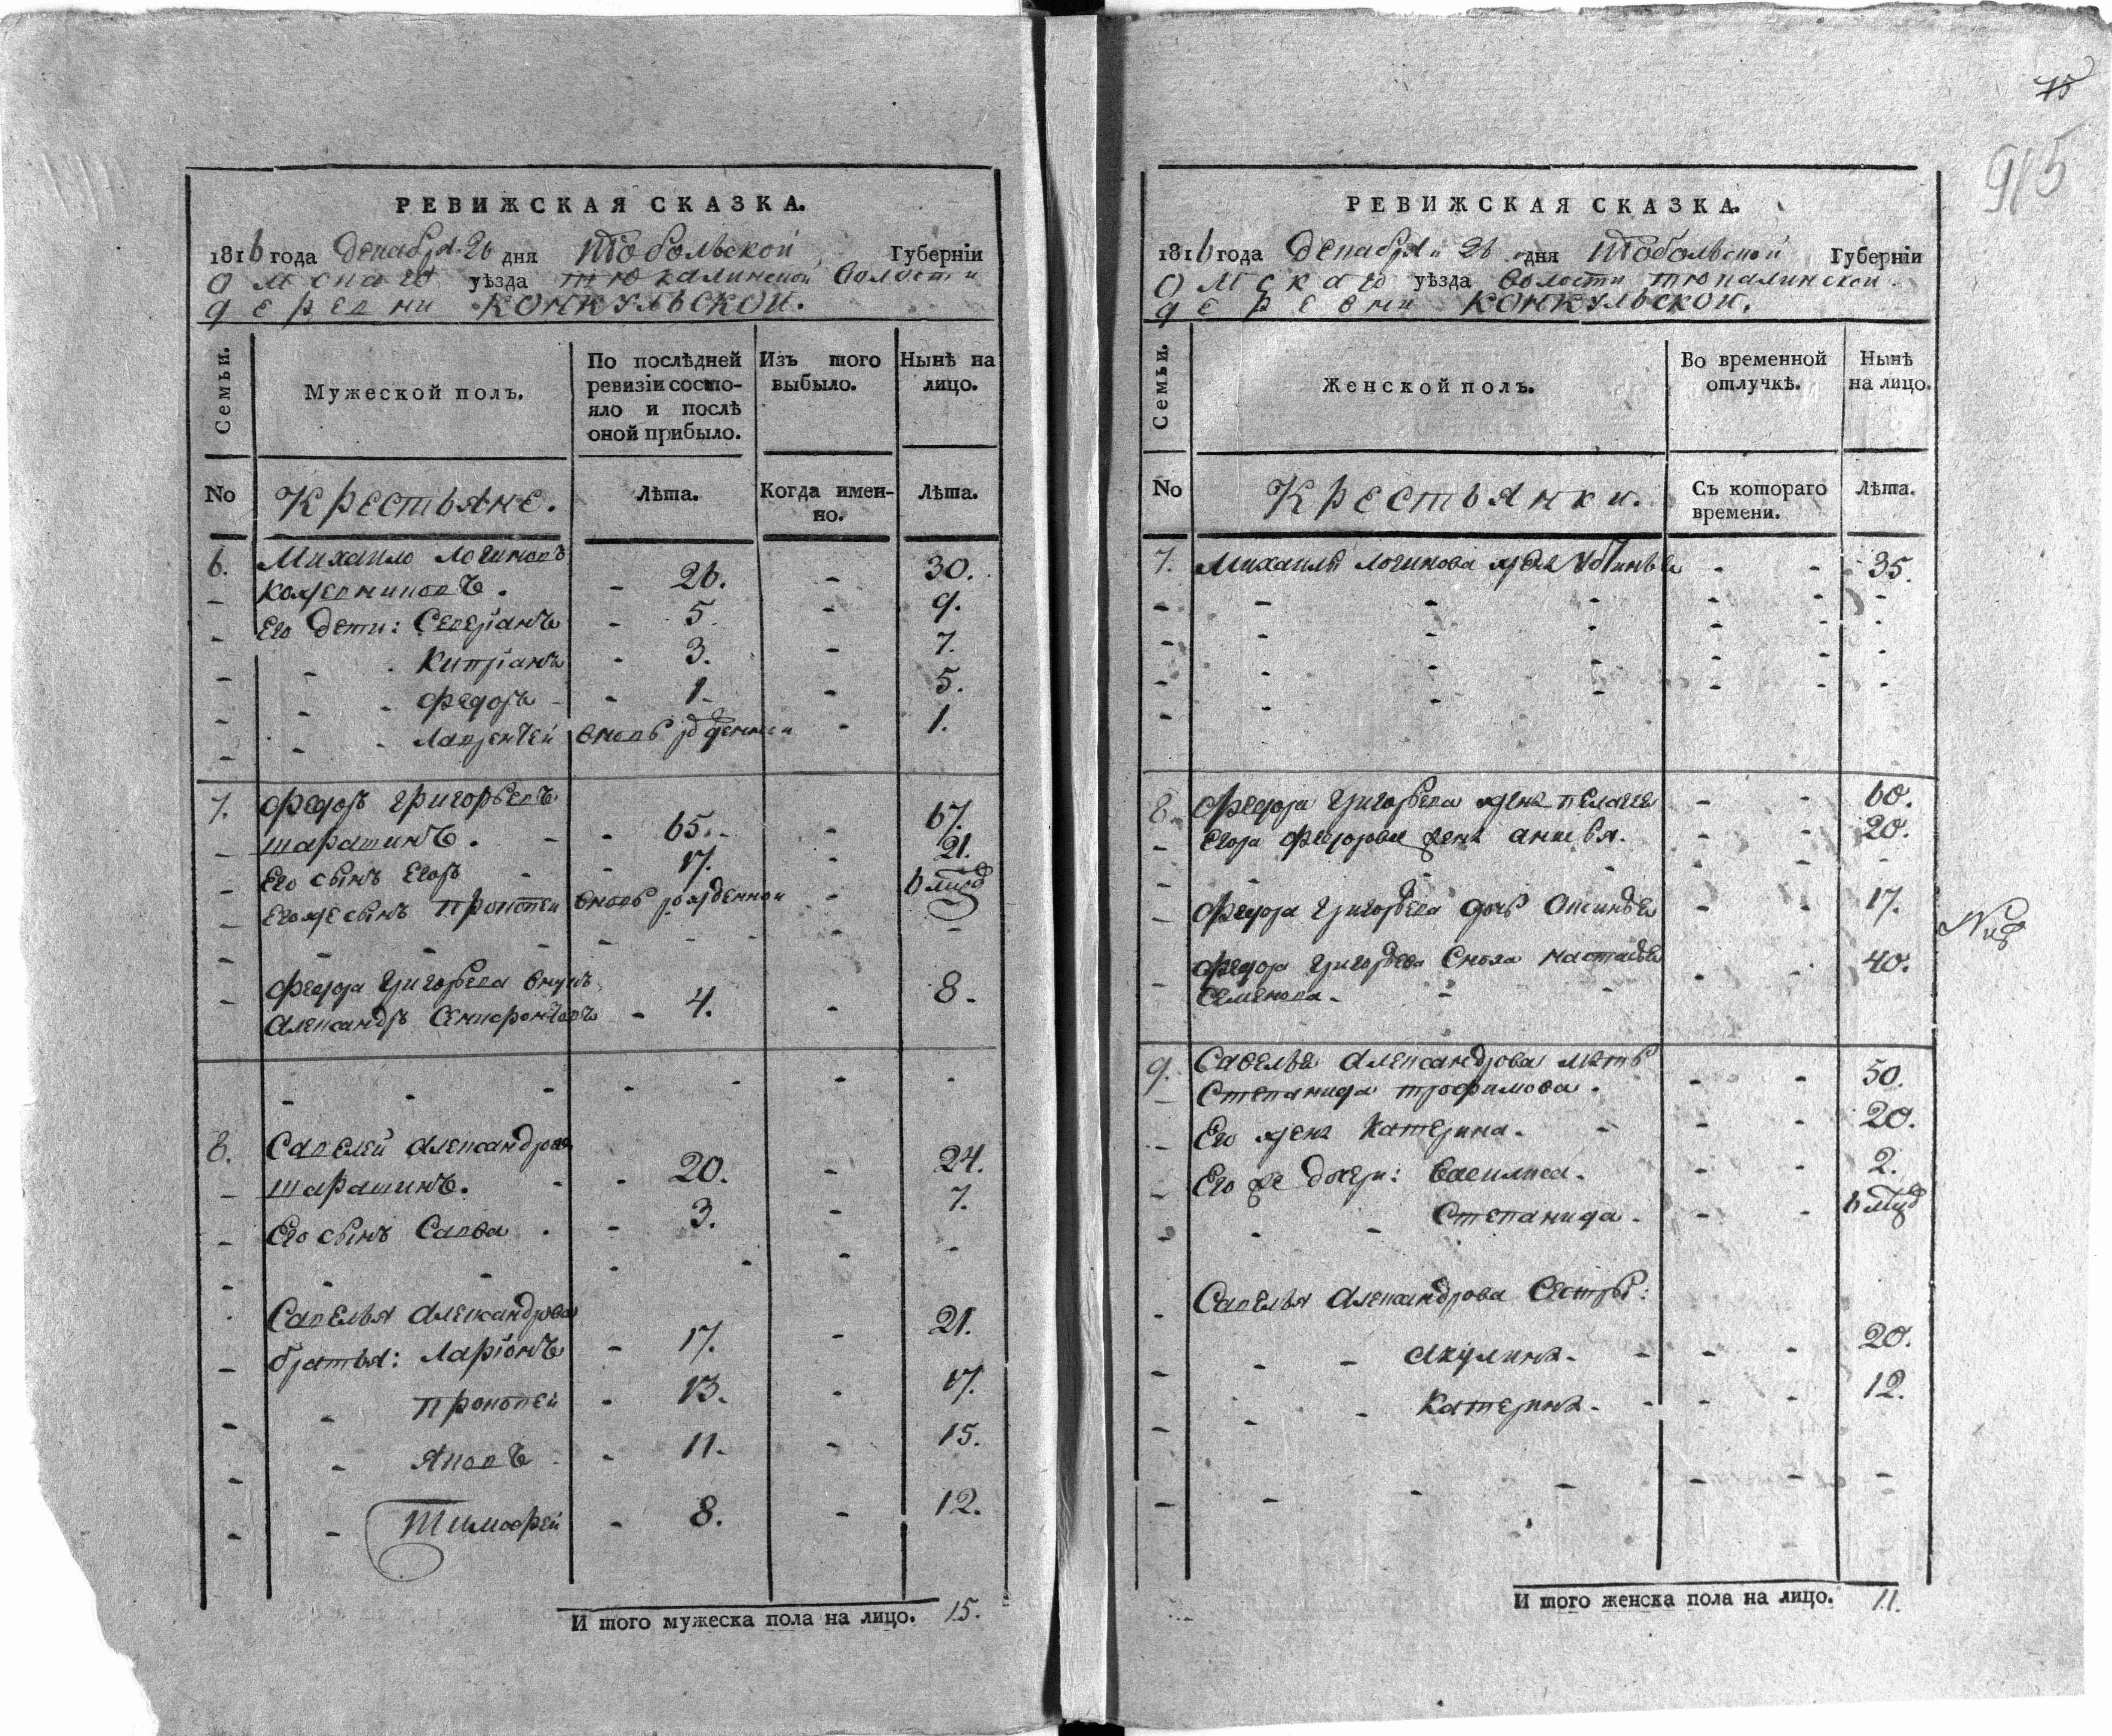 РЕВИЖСКАЯ СКАЗКА.
1816 года Декабря 26 дня Тобольской Губернїи
Омскаго уѣзда тюкалинской волости
деревни конкульской.
Семьи.
Мужеской полъ.
По послѣдней ревизїи состояло и послѣ оной прибыло.
Изъ того выбыло.
Нынѣ на лицо.
No
Крестьяне.
Лѣта.
Когда именно.
Лѣта.
6. Михаило Логиновъ
кожевниковъ. - 26. - 30.
Его дети: Северїанъ - 5. - 9.
Кипрїанъ - 3. - 7.
Федоръ - 1. - 5.
Лаврентей вновь рожденной - 1.
7. Федоръ григорьевъ
шарашинъ. - 65. - 67.
Его сынъ Егоръ - 17. - 21.
Егоже сынъ прокопеи вновь рожденной - 6 мцов
Федора григорьева внукъ
Александръ - 4. - 8.
8. Савелей Александровъ
шарашинъ. - 20. - 24.
Его сынъ Савва - 3. - 7.
Савелья Александрова
братья: Ларїонъ - 17. - 21.
прокопеи - 13. - 17.
яковъ - 11. - 15.
Тимофей - 8. - 12.
И того мужеска пола на лицо. 15.
915
РЕВИЖСКАЯ СКАЗКА.
1816 года декабря 26 дня Тобольской Губернїи
Омскаго уѣзда волости тюкалинской
деревни конкульской.
Семьи.
Женской полъ.
Во временной отлучкѣ.
Нынѣ на лицо.
No
Крестьянки.
Съ котораго времени.
Лѣта.
7. Михаилы логинова жена - - 35.
8. Федора григорьева жена пелагея - - 60.
Егора федорова жена анисья. - - 20.
Федора григорьева дочь - - 17.
Федора григорьева сноха настасья
семенова. - - 40.
9. Савелья Александрова мать
степанида трофимова. - - 50.
Его жена катерина. - - 20.
Его же дочери: василиса. - - 2.
степанида. - - 6 мцов
Савелья Александрова сестры:
Акулина. - - 20.
катерина. - - 12.
И того женска пола на лицо. 11.